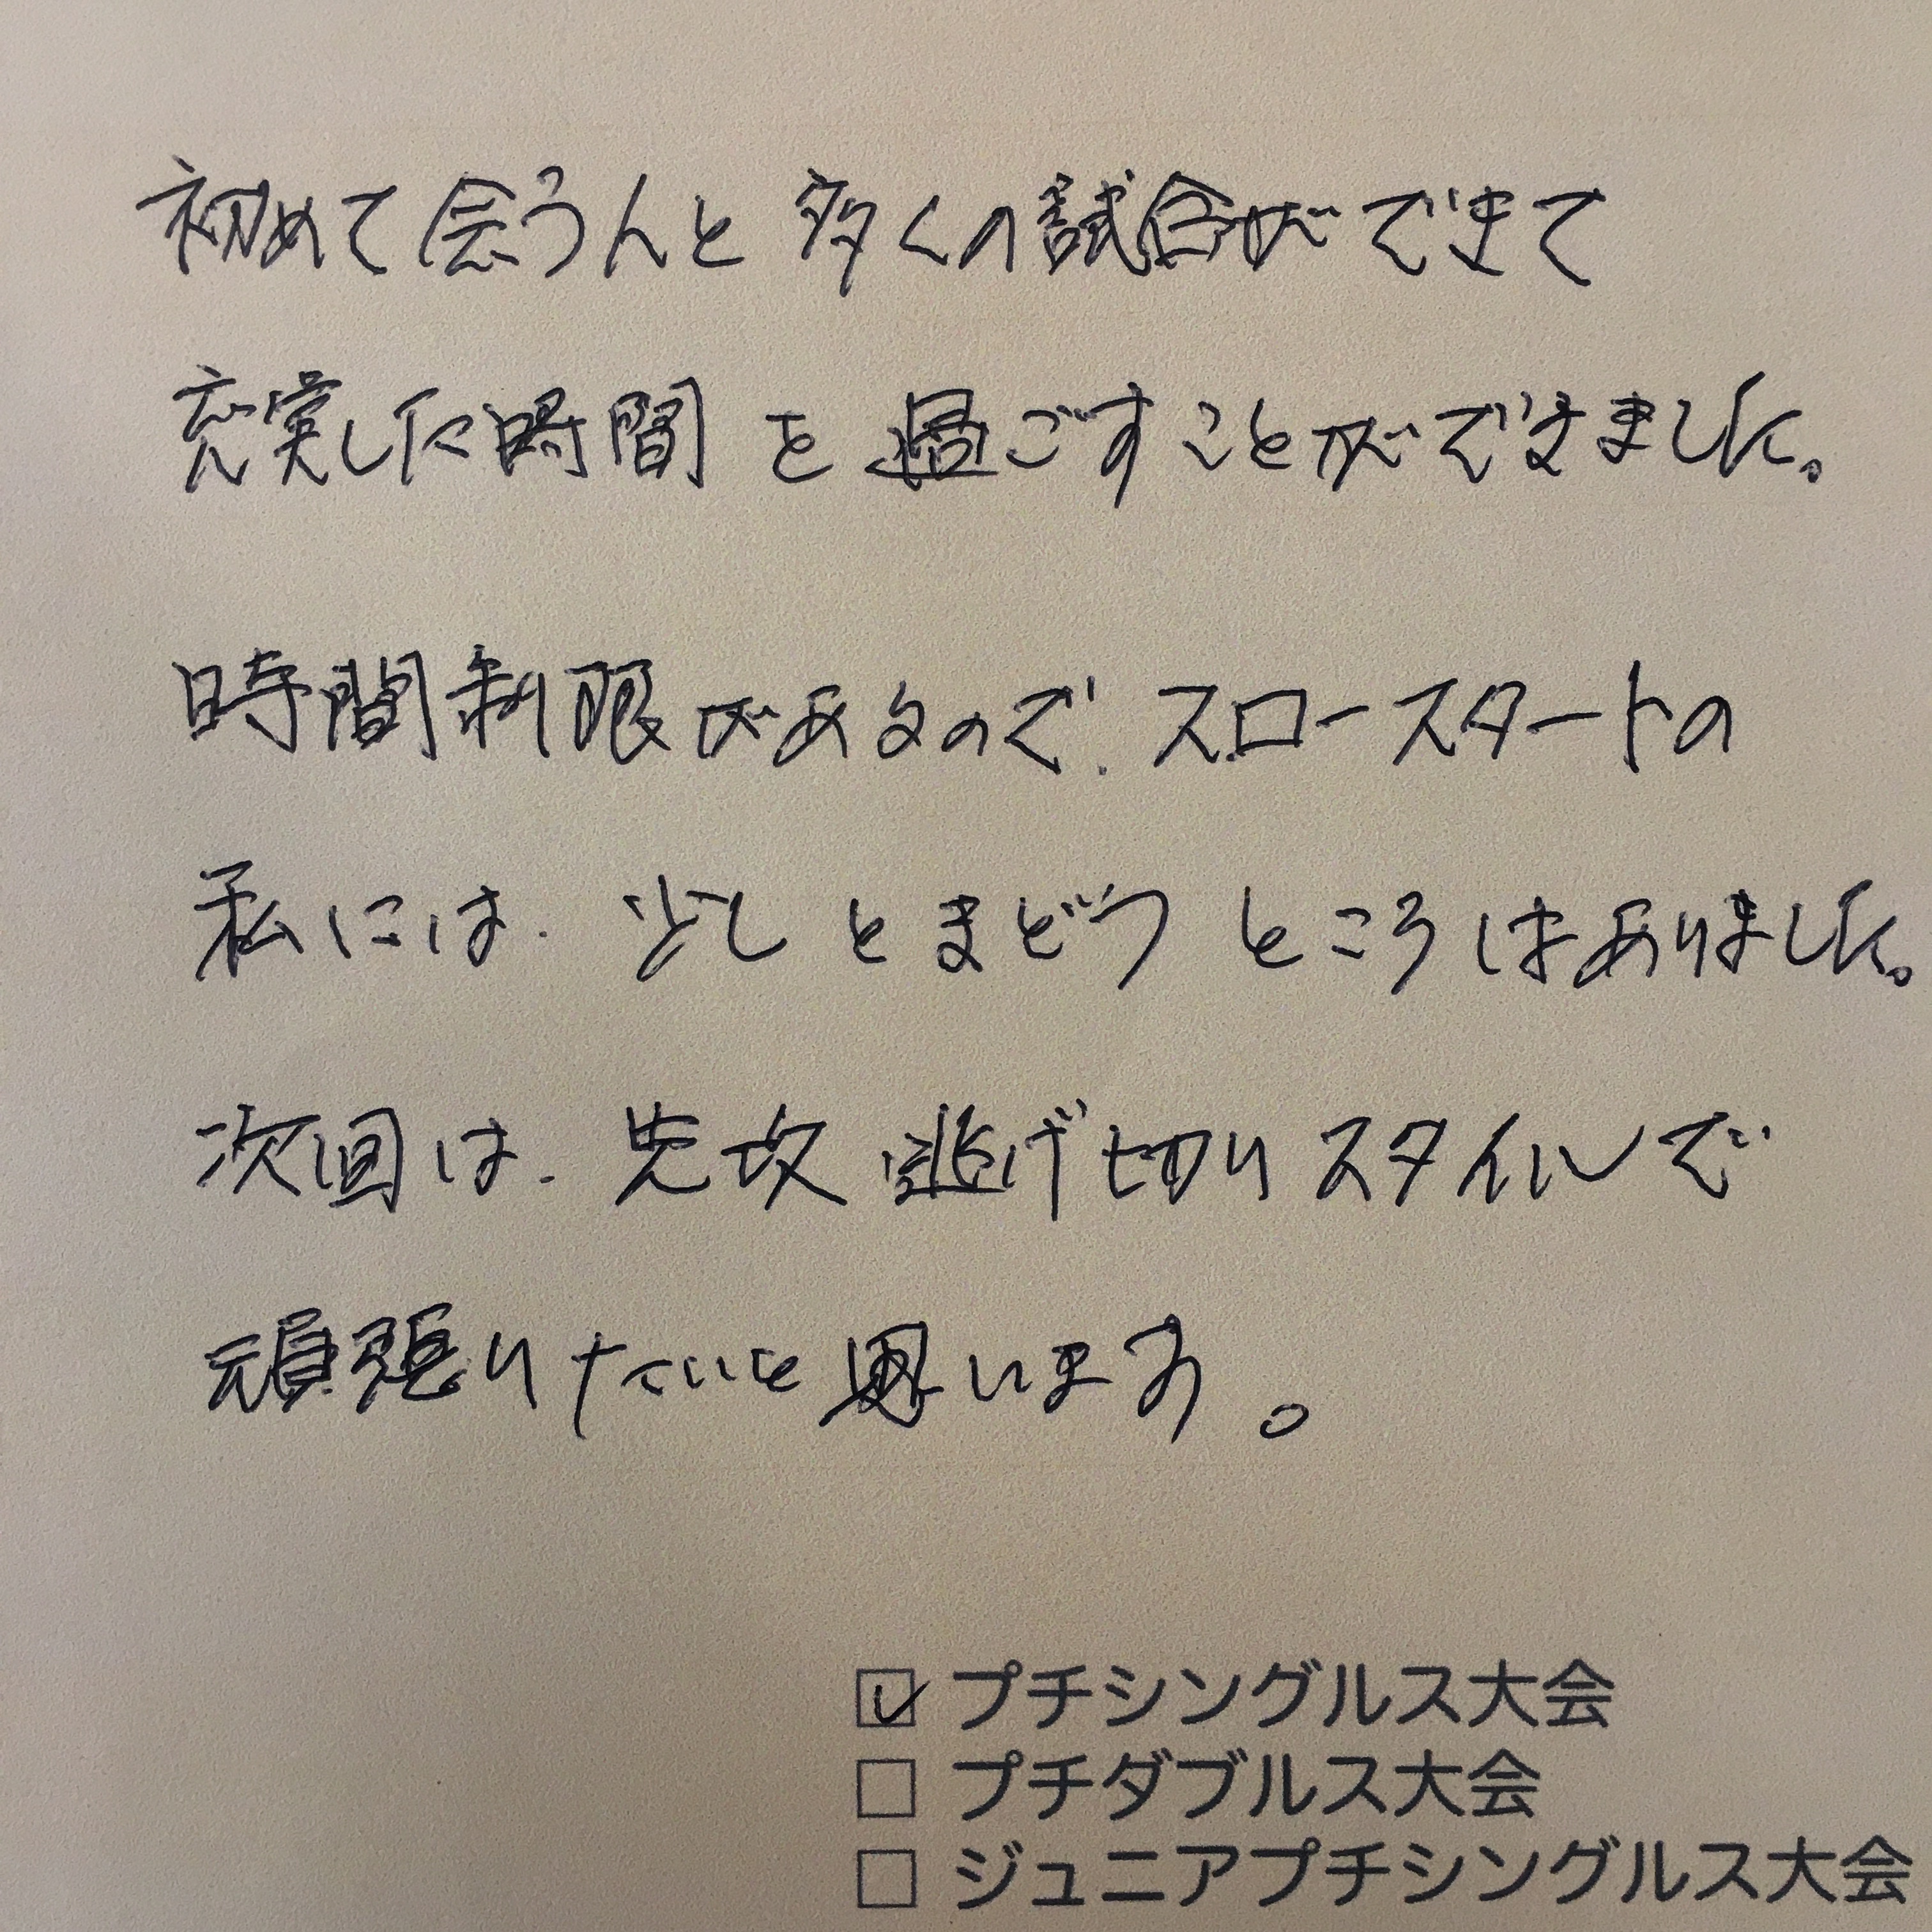 初めて会う人と多くの試合ができて
充実した時間を過ごすことができました。
時間制限があるので、スロースタートの
私には、少しとまどうところはありました。
次回は、先攻逃げ切りスタイルで
頑張りたいと思います。
☑ プチシングルス大会
□ プチダブルス大会
□ ジュニアプチシングルス大会